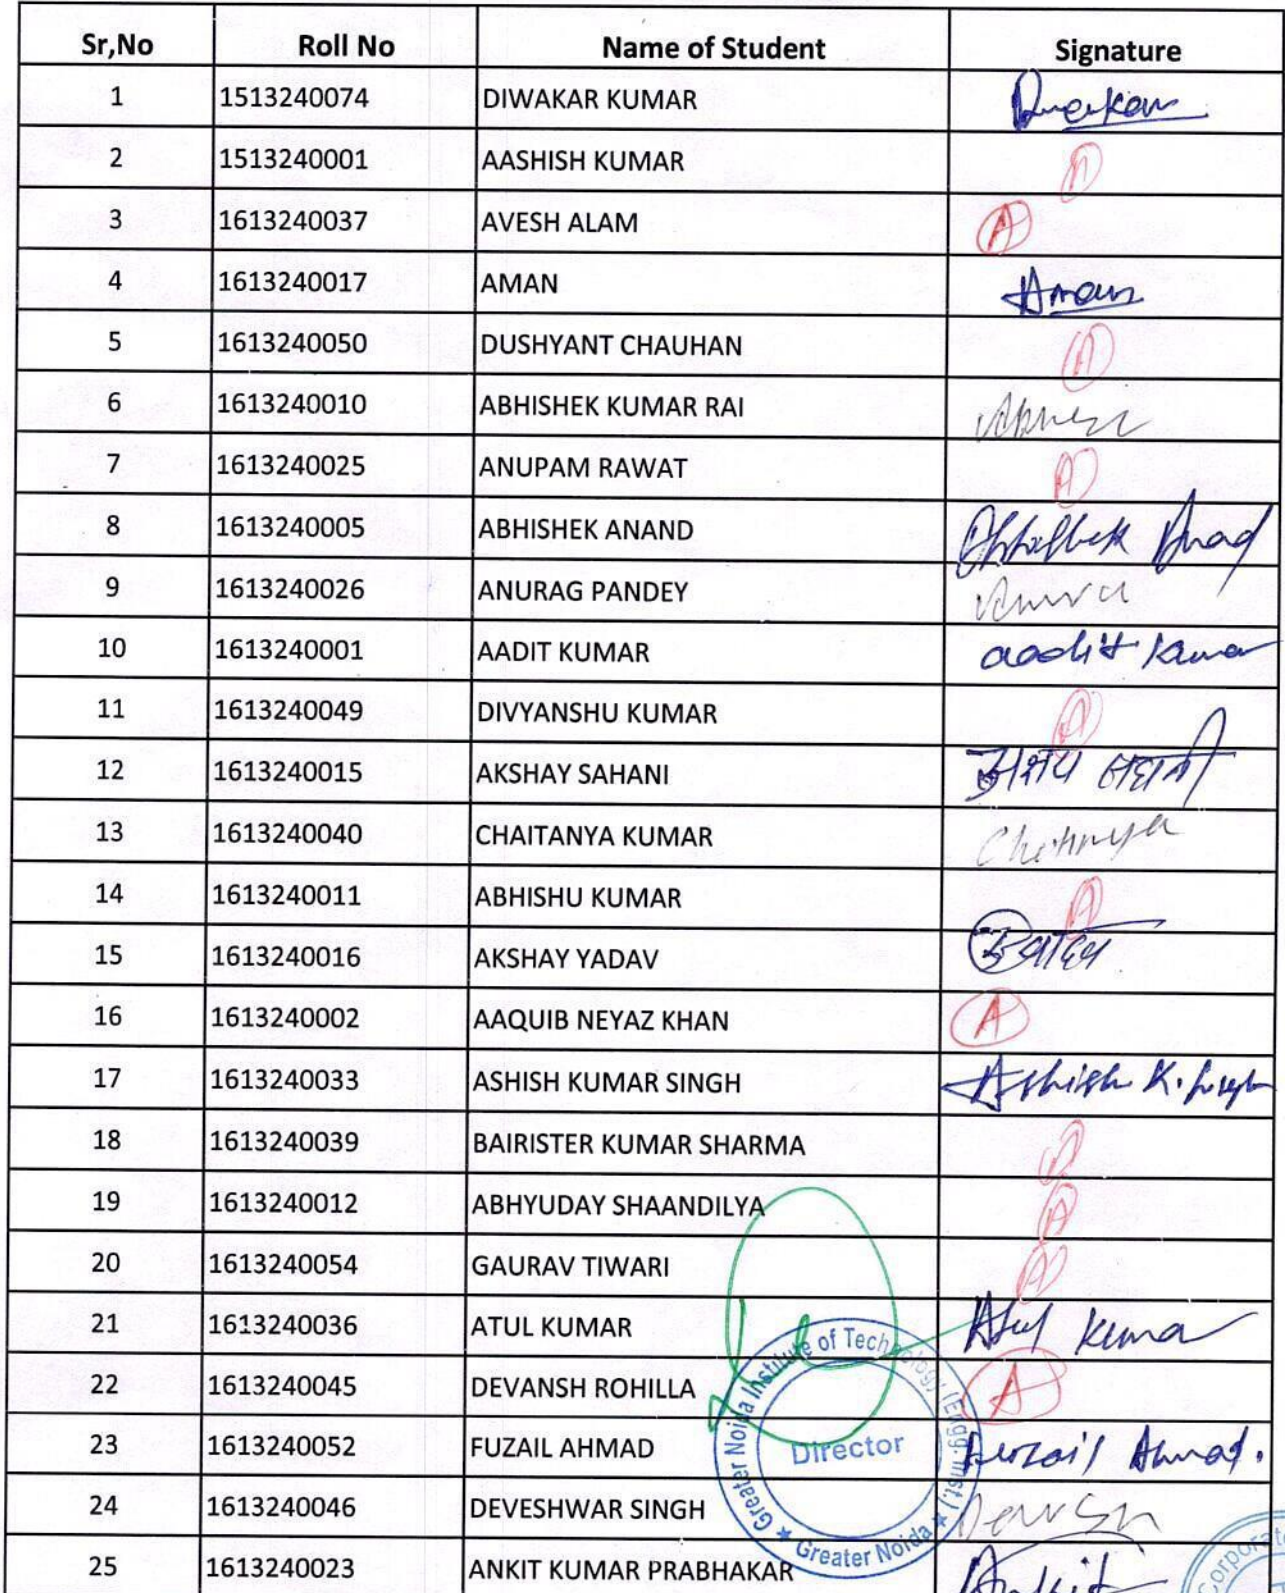 Sr,No Roll No Name of Student Signature
1 1513240074 DIWAKAR KUMAR Diwakar
2 1513240001 AASHISH KUMAR A
3 1613240037 AVESH ALAM A
4 1613240017 AMAN Aman
5 1613240050 DUSHYANT CHAUHAN A
6 1613240010 ABHISHEK KUMAR RAI
7 1613240025 ANUPAM RAWAT A
8 1613240005 ABHISHEK ANAND
9 1613240026 ANURAG PANDEY
10 1613240001 AADIT KUMAR aadit Kumar
11 1613240049 DIVYANSHU KUMAR A
12 1613240015 AKSHAY SAHANI
13 1613240040 CHAITANYA KUMAR
14 1613240011 ABHISHU KUMAR A
15 1613240016 AKSHAY YADAV
16 1613240002 AAQUIB NEYAZ KHAN A
17 1613240033 ASHISH KUMAR SINGH Ashish K. Singh
18 1613240039 BAIRISTER KUMAR SHARMA A
19 1613240012 ABHYUDAY SHAANDILYA A
20 1613240054 GAURAV TIWARI A
21 1613240036 ATUL KUMAR Atul Kumar
22 1613240045 DEVANSH ROHILLA A
23 1613240052 FUZAIL AHMAD Fuzail Ahmad.
24 1613240046 DEVESHWAR SINGH
25 1613240023 ANKIT KUMAR PRABHAKAR Ankit
Greater Noida Institute of Technology (Engg. Inst.)
Director
★ Greater Noida ★